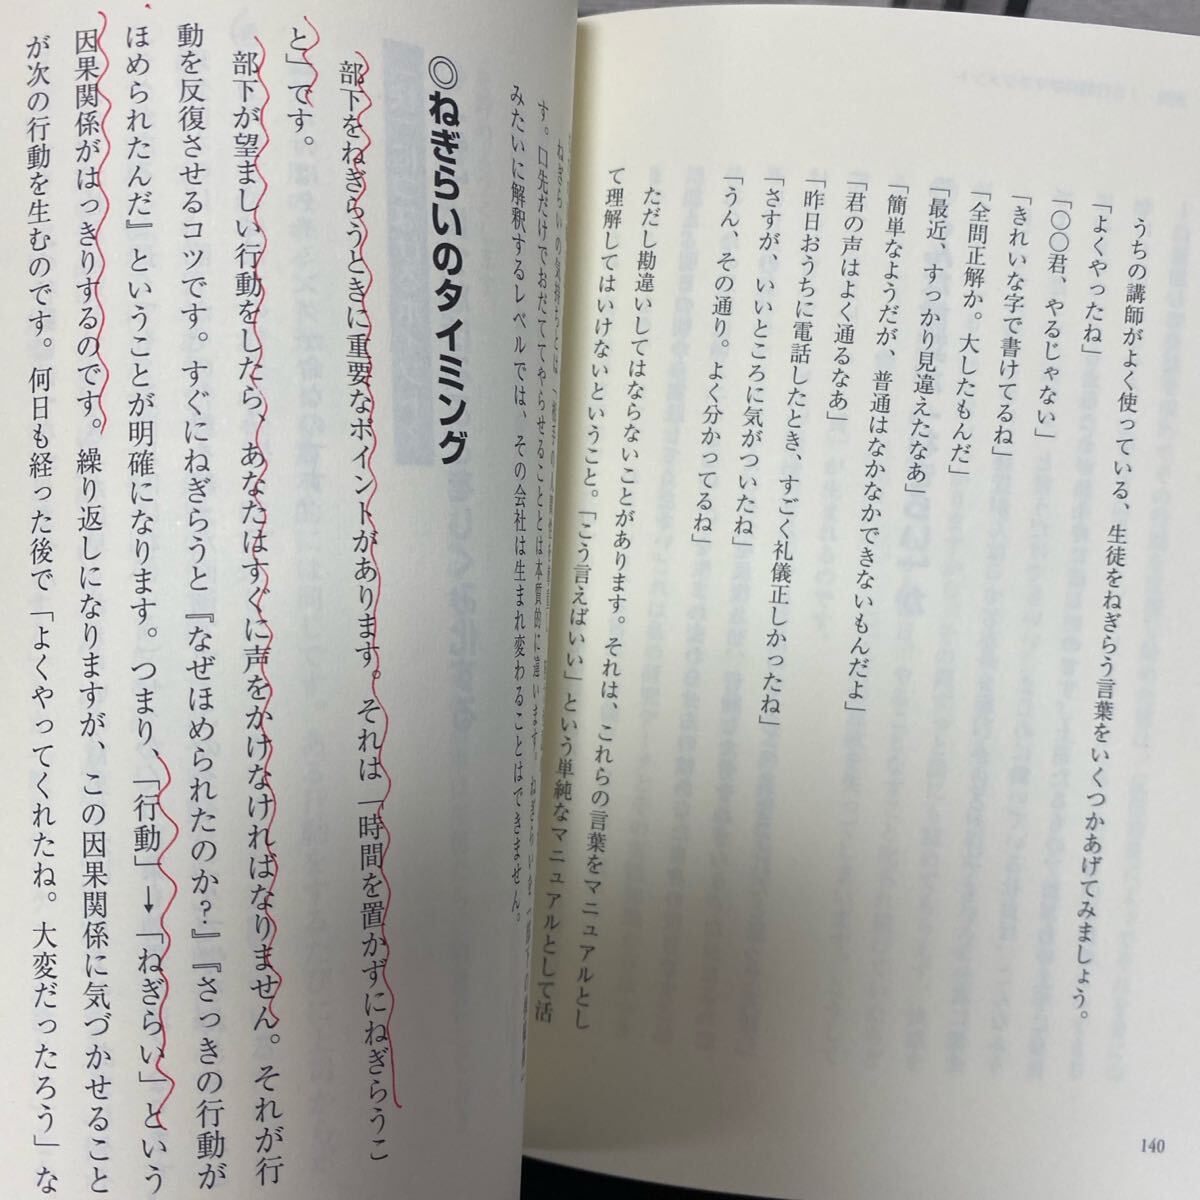 うちの講師がよく使っている、生徒をねぎらう言葉をいくつかあげてみましょう。
「よくやったね」
「○○君、やるじゃない」
「きれいな字で書けてるね」
「全問正解か。大したもんだ」
「最近、すっかり見違えたなあ」
「簡単なようだが、普通はなかなかできないもんだよ」
「君の声はよく通るなあ」
「昨日おうちに電話したとき、すごく礼儀正しかったね」
「さすが、いいところに気がついたね」
「うん、その通り。よく分かってるね」
ただし勘違いしてはならないことがあります。それは、これらの言葉をマニュアルとし
て理解してはいけないということ。「こう言えばいい」という単純なマニュアルとして活
140
ねぎらいの気持ちとは「相手の人間性を尊重し
す。口先だけでおだててやらせることとは本質的に違います。ねぎらいを
みたいに解釈するレベルでは、その会社は生まれ変わることはできません。
◎ねぎらいのタイミング
部下をねぎらうときに重要なポイントがあります。それは「時間を置かずにねぎらうこ
と」です。
部下が望ましい行動をしたら、あなたはすぐに声をかけなければなりません。それが行
動を反復させるコツです。すぐにねぎらうと『なぜほめられたのか?』『さっきの行動が
ほめられたんだ』ということが明確になります。つまり、「行動」→「ねぎらい」という
因果関係がはっきりするのです。繰り返しになりますが、この因果関係に気づかせること
が次の行動を生むのです。何日も経った後で「よくやってくれたね。大変だったろう」な